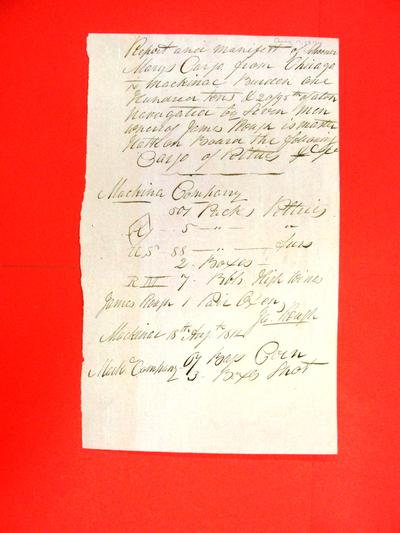 Report and manifest of Schooner
Marys Cargo from Chicago
to Mackinac Burden one
Hundred tons & 20/95th of a ton
Navigated by Seven Men
whereof James Rough is master
Hath on Board the following
Cargo of Peltries &c
Mackina Company
507 Packs Peltries
5 — " — "
U.S. 88 — " — furs
2 - Boxes
7 - Bbls High Wines
James Rough 1 Pair Oxen
Js. Rough
Mackinac 18th Augt 1812
Mack Company 69 Bags Corn
3 - Boxes Shot